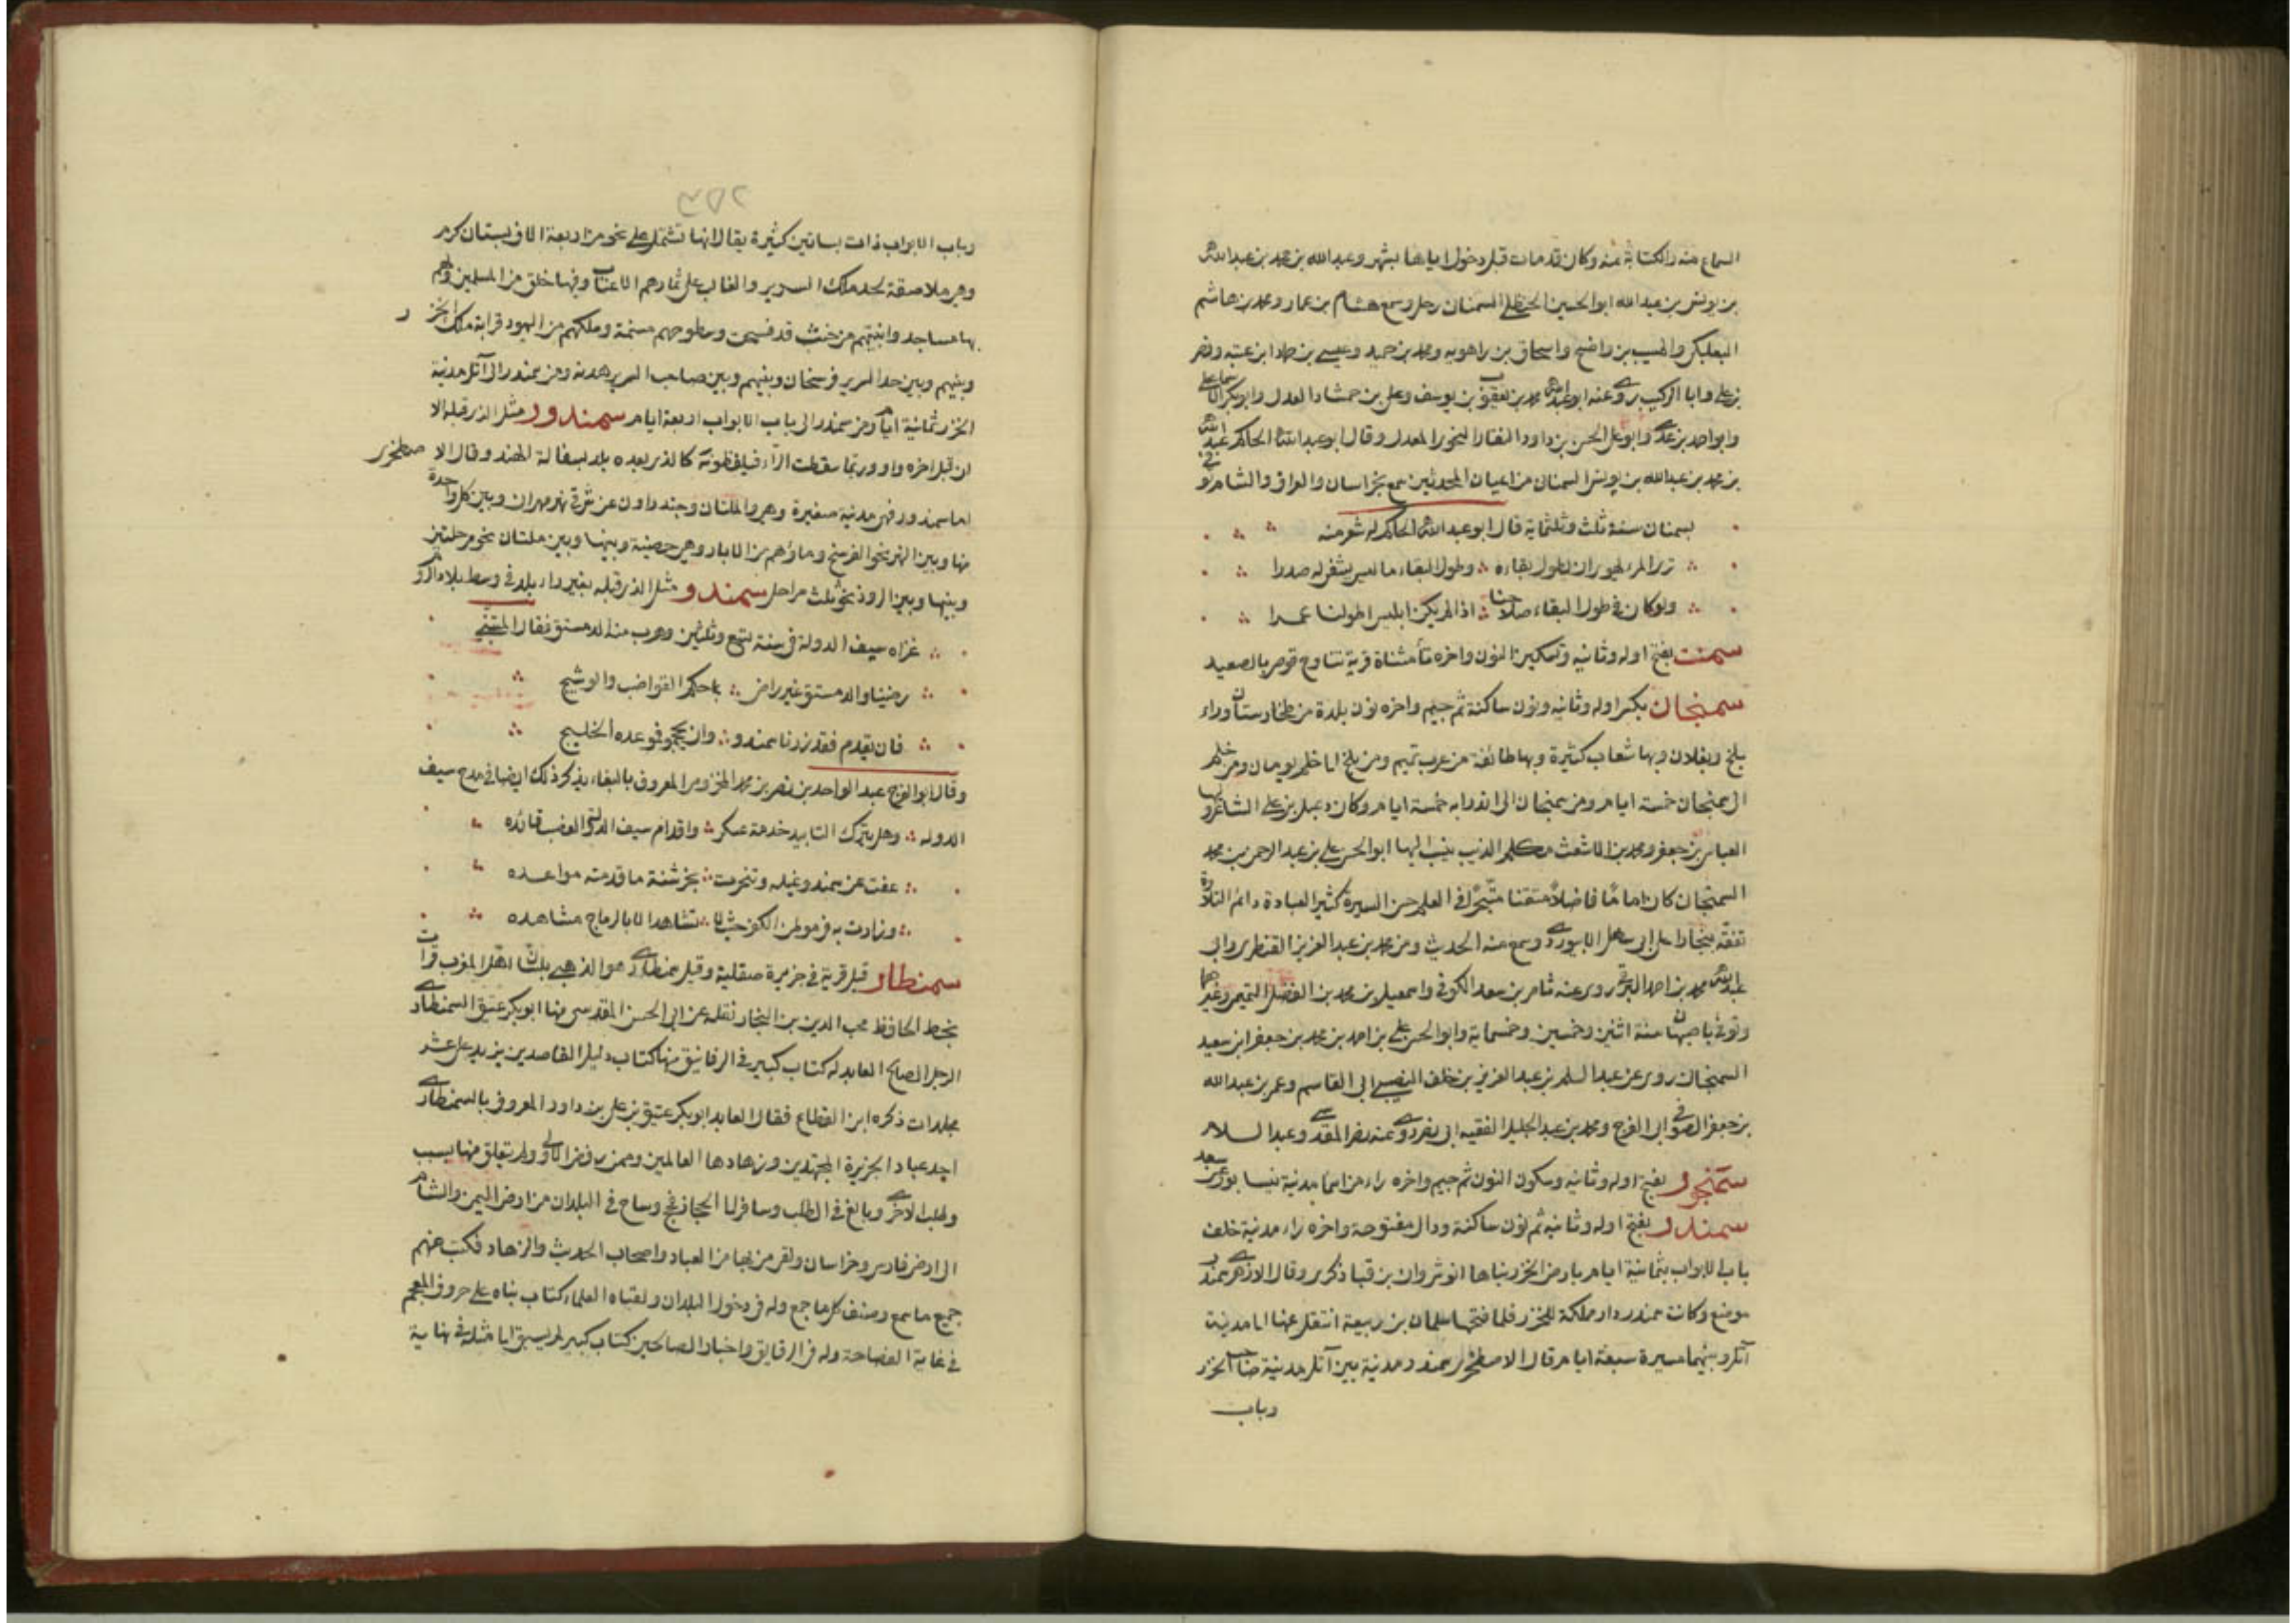 السماع منه والكتابة عنه وكان قد مات قبل دخول اياها بشهر وعبد الله بن محمد بن عبد الله
بن يونس بن عبد الله ابو الحسين الحنظلي السمناني رحل وسمع هشام بن عمار ومحمد بن هاشم
البعلبكي والمسيب بن واضح واسحاق بن راهويه ومحمد بن حميد وعيسى بن حماد ابن عتبه ونصر
بن علي وابا كريب روى عنه ابو عبد الله محمد بن يعقوب بن يوسف وعلي بن حمشاد العدل وابو بكر الاسماعيلي
وابو احمد بن عدي وابو علي الحسن بن داود النقار النحوي المعدل وقال ابو عبد الله الحاكم عبد الله
بن محمد بن عبد الله بن يونس السمناني من اعيان المحدثين سمع بخراسان والعراق والشام توفي
بسمنان سنة ثلث وثلثماية قال ابو عبد الله الحاكم له شعر منه
ترى المرء يهوى ان يطول بقاءه وطول البقاء ما ليس يشفي له صدرا
ولو كان في طول البقاء صلاحنا اذا لم يكن ابليس اطولنا عمرا
سمنت بفتح اوله وثانيه وتسكين النون واخره تاء مثناة قرية تتاوح قوص بالصعيد
سمنجان بكسر اوله وثانيه ونون ساكنة ثم جيم واخره نون بلدة من طخارستان وراء
بلخ وبغلان وبها شعاب كثيرة وبها طائفة من عرب تميم ومن بلخ الى خلم يومان ومن خلم
الى سمنجان خمسة ايام ومن سمنجان الى اندرابه خمسة ايام وكان دعبل بن علي الشاعر
العباس بن جعفر ومحمد بن الاشعث ينسب اليها ابو الحسن علي بن عبد الرحمن بن محمد
السمنجاني كان اماما فاضلا متقنا متبحرا في العلم حسن السيرة كثير العبادة دائم التلاوة
تفقه ببخارا على ابي سهل الابيوردي وسمع منه الحديث ومن محمد بن عبد العزيز القنطري وابي
عبد الله محمد بن احمد البرقي روى عنه ثامر بن سعد الكوفي واسمعيل بن محمد بن الفضل التيمي وغيرهما
وتوفي باصبهان سنة اثنين وخمسين وخمسماية وابو الحسن علي بن احمد بن محمد بن جعفر ابن سعيد
السمنجاني روى عن عبد السلم بن عبد العزيز بن خلف النصيبي ابي القاسم وعمر بن عبد الله
بن جعفر الصوفي ابي الفرج ومحمد بن عبد الجليل الفقيه ابي نصر روى عنه نصر المقدسي وعبد السلام
سمنجور بفتح اوله وثانيه وسكون النون ثم جيم واخره راء من اسما مدينة نيسابور عن سعد
سمندر بفتح اوله وثانيه ثم نون ساكنة ودال مفتوحة واخره راء مدينة خلف
باب الابواب بثمانية ايام بارض الخزر بناها انوشروان بن قباذ كسرى وقال الازهري سمندر
موضع وكانت سمندر دار مملكة للخزر فلما فتحها سلمان بن ربيعة انتقل عنها الى مدينة
آتل وبينهما مسيرة سبعة ايام قال الاصطخري سمندر مدينة بين آتل مدينة صاحب الخزر
وباب
٢٥٥
وباب الابواب ذات بساتين كثيرة يقال انها تشتمل على نحو من اربعة الاف بستان كرم
وهي ملاصقة لحد ملك السرير والغالب على ثمارهم الاعناب وفيها خلق من المسلمين ولهم
بها مساجد وابنيتهم من خشب قد فسحت وسطوحهم مسنمة وملكهم من اليهود قرابة ملك الخزر
وبينهم وبين حد السرير فرسخان وبينهم وبين صاحب السرير هدنة ومن سمندر الى آتل مدينة
الخزر ثمانية ايام ومن سمندر الى باب الابواب اربعة ايام سمندور مثل الذي قبله الا
ان قبل اخره واو وربما سقطت الراء فيلفظونه كالذي بعده بلد بسفالة الهند وقال الاصطخري
اما سمندور فهي مدينة صغيرة وهي والملتان وجندراون عن شرقي نهر مهران وبين كل واحدة
منها وبين النهر نحو الفرسخ وماؤهم من الابار وهي حصينة وبينها وبين ملتان نحو مرحلتين
وبينها وبين الروذ نحو ثلث مراحل سمندو مثل الذي قبله بغير راء بلد في وسط بلاد الروم
غزاه سيف الدولة في سنة تسع وثلثين وهرب منه الدمستق فقال المتنبي
رضينا والدمستق غير راض بما حكم القواضب والوشيج
فان يقدم فقد زرنا سمندو وان يحجم فموعده الخليج
وقال ابو الفرج عبد الواحد بن نصر بن محمد المخزومي المعروف بالببغاء يذكر ذلك ايضا في مدح سيف
الدوله وهل يترك التاييد خدمة عسكر واقدام سيف الدولة العضب قائده
عفت عن سمندو خيله وتنجزت بخرشنة ما قدمته مواعده
وزارت به في موطن الكفر حيث لا تشاهد الا بالرماح مشاهده
سمنطار قيل قرية في جزيرة صقلية وقيل سمنطاري هو الذهبي بلسان اهل المغرب قرات
بخط الحافظ محب الدين بن النجار نقله عن ابي الحسن المقدسي منها ابو بكر عتيق السمنطاري
الرجل الصالح العابد له كتاب كبير في الرقائق منها كتاب دليل القاصدين يزيد على عشر
مجلدات ذكره ابن القطاع فقال العابد ابو بكر عتيق بن علي بن داود المعروف بالسمنطاري
احد عباد الجزيرة المجتهدين وزهادها العالمين وممن رفض الاولى ولم يتعلق منها بسبب
وطلب الاخرى وبالغ في الطلب وسافر الى الحجاز فحج وساح في البلدان من ارض اليمن والشام
الى ارض فارس وخراسان ولقي من بها من العباد واصحاب الحديث والزهاد فكتب عنهم
جميع ما سمع وصنف كل ما جمع وله في دخول البلدان ولقياه العلماء كتاب بناه على حروف المعجم
في غاية الفصاحة وله في الرقايق واخبار الصالحين كتاب كبير لم يسبق الى مثله في نهاية